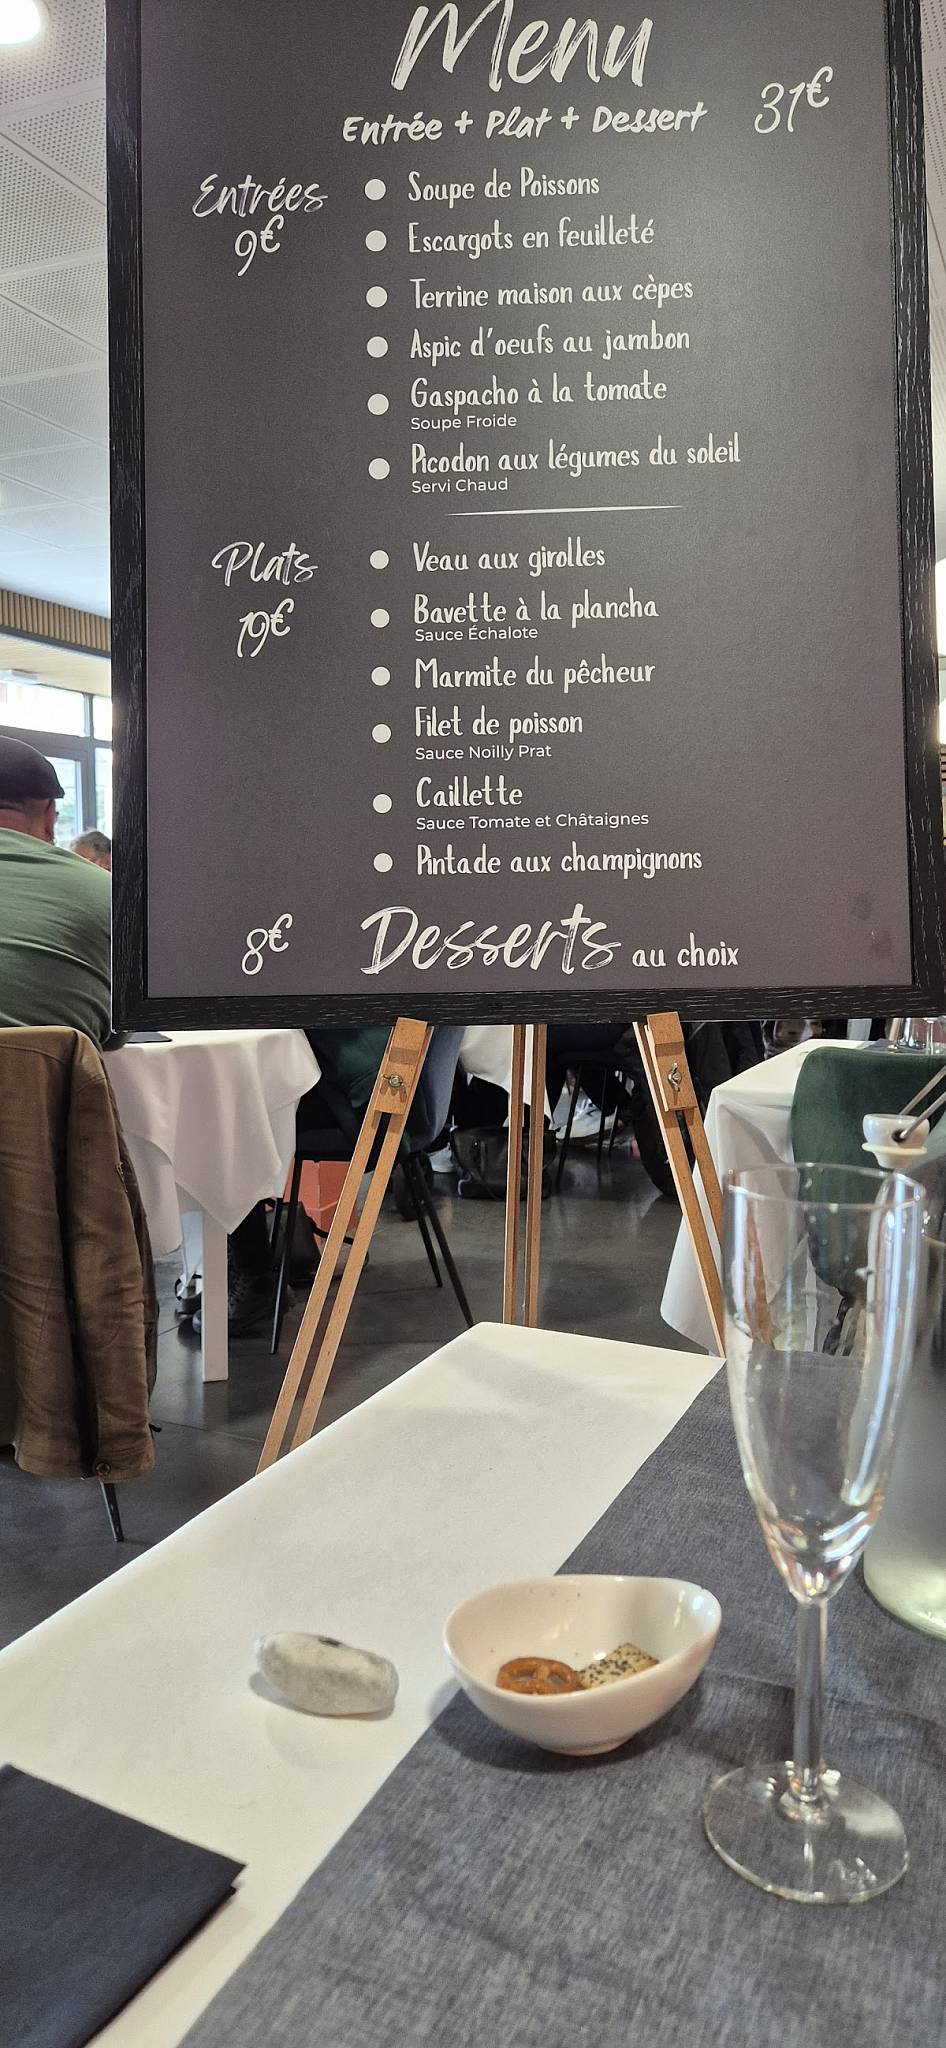 Menu
Entrée + Plat + Dessert 31€
Entrées
9€
Soupe de Poissons
Escargots en feuilleté
Terrine maison aux cèpes
Aspic d'oeufs au jambon
Gaspacho à la tomate
Soupe Froide
Picodon aux légumes du soleil
Servi Chaud
Plats
19€
Veau aux girolles
Bavette à la plancha
Sauce Échalote
Marmite du pêcheur
Filet de poisson
Sauce Noilly Prat
Caillette
Sauce Tomate et Châtaignes
Pintade aux champignons
8€ Desserts au choix